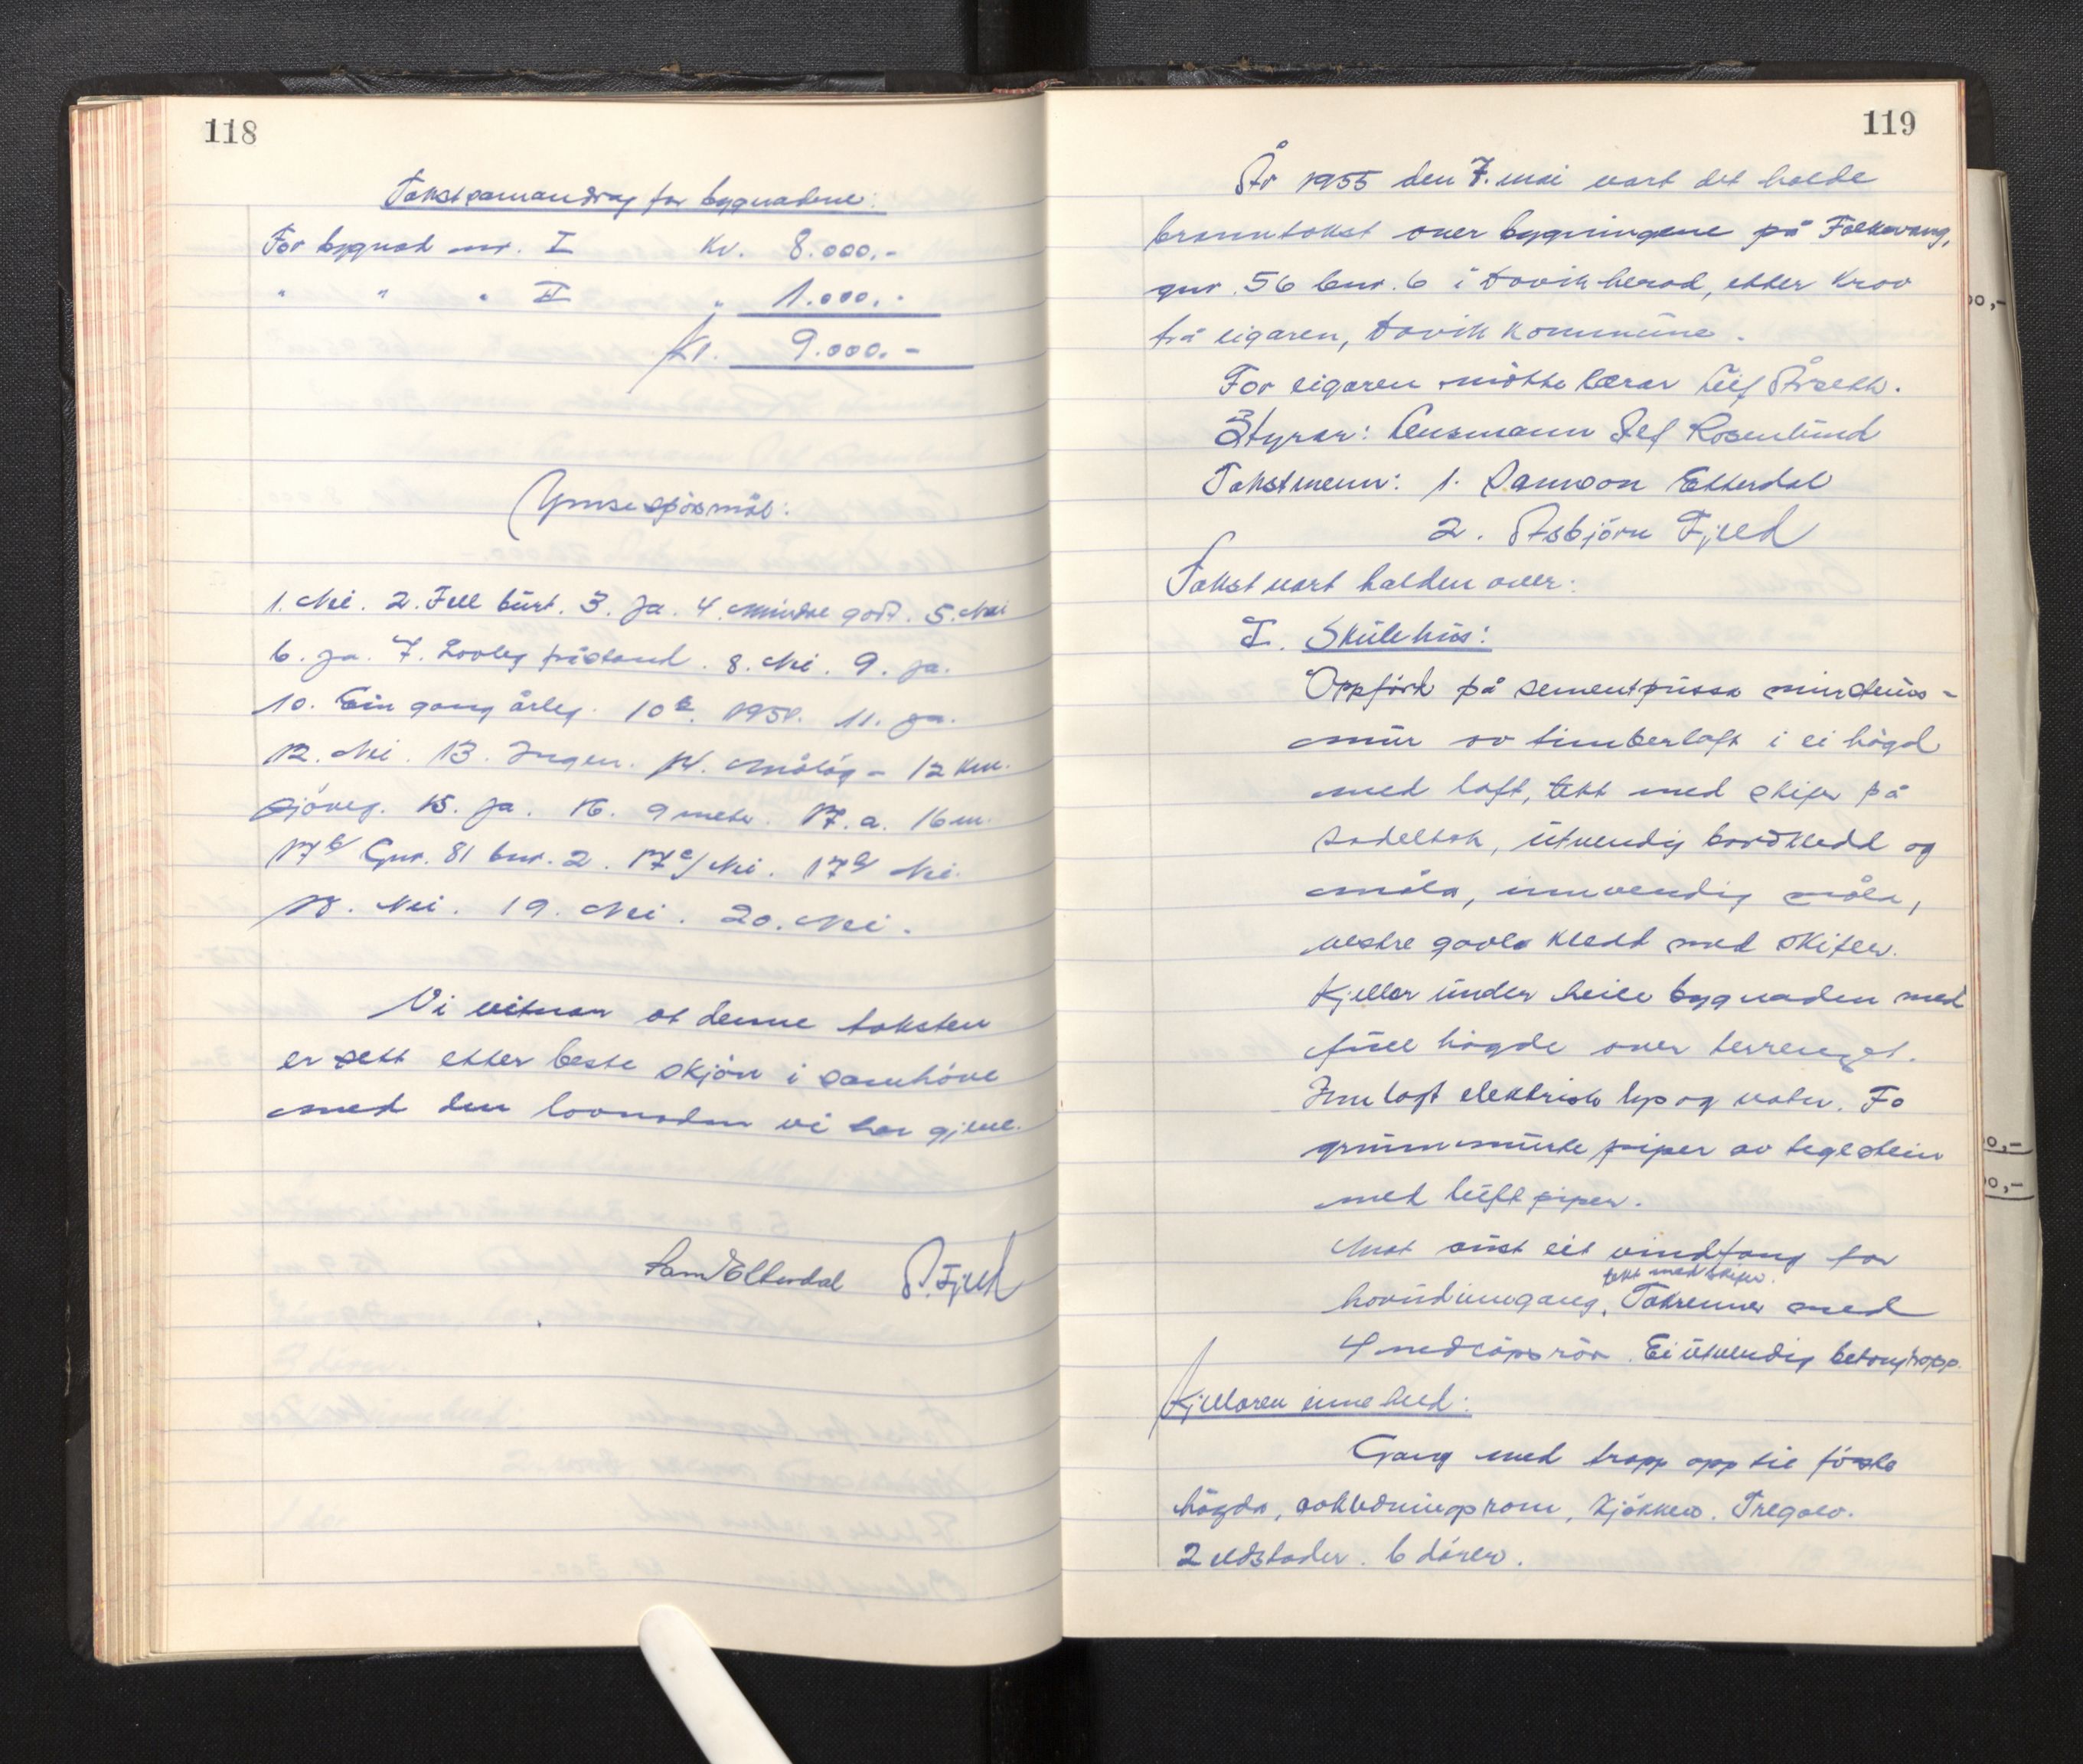 118
Takstsamandrag for bygnadene:
For bygnad nr. I Kr. 8.000,-
" " " II " 1.000,-
Kr. 9.000.-
Ymse spösmål:
1. Nei. 2. Fell burt. 3. Ja. 4. Mindre god. 5. Nei
6. Ja. 7. Lovleg påstand. 8. Nei. 9. Ja.
10. Ein gong årleg. 10 b. 1951. 11. Ja.
12. Nei. 13. Ingen. 14. Målöy - 12 km.
sjöveg. 15. Ja. 16. 9 meter. 17. a. 16 m.
17 b/ Gnr. 81 bnr. 2. 17 c/ Nei. 17 d/ Nei.
18. Nei. 19. Nei. 20. Nei.
Vi vitnar at denne taksten
er sett etter beste skjön i samhöve
med den lovnaden vi har gjeve.
Sam Etterdal A. Fjeld
119
År 1955 den 7. mai vart det halde
branntakst over bygningene på Folkevang,
gnr. 56 bnr. 6 i Davik herad, etter krav
frå eigaren, Davik kommune.
For eigaren mötte lærar Leif Årseth.
Styrar: Lensmann Alf Rosenlund
Takstmenn: 1. Samson Etterdal
2. Asbjörn Fjeld
Takst vart halden over:
I. Skulehus:
Oppförd på sementpussa
mur av timberlaft i ei högd
med loft, tekt med skifer på
sadeltak, utvendig bordkledd og
måla, innvendig måla,
vestre gavle kledd med skifer.
Kjellar under heile bygnaden med
full högde over terrenget.
Innlagt elektrisk lys og vatn. To
grunnmurte piper av teglstein
med luftpiper.
Mot aust eit vindfang for
tekt med skifer.
hovudinngang. Takrenner med
4 nedlöpsrör. Ei utvendig betongtrapp.
Kjellaren inneheld:
Gang med trapp opp til förste
högda, avkledningsrom, kjökken. Tregolv.
2 eldstader. 6 dörer.
0,-
0,-
0,-